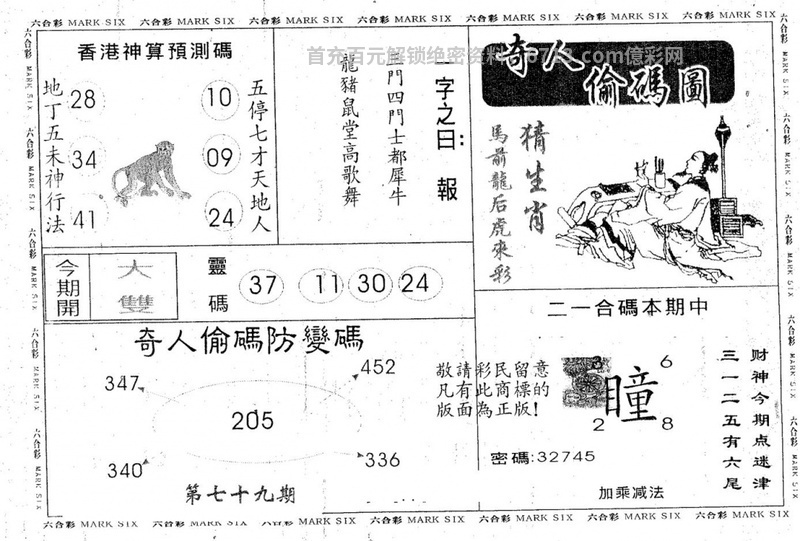 六合彩 MARK SIX 六合彩 MARK SIX 六合彩 MARK SIX 六合彩 MARK SIX 六合彩 MARK SIX 六合彩 MARK SIX 六合彩 MARK SIX
香港神算預測碼
地丁五未神行法
28
34
41
10
09
24
五停七才天地人
字之曰:
報
三門四門士都犀牛
龍豬鼠堂高歌舞
首充百元解锁绝密资料
com億彩网
奇人偷碼圖
猜生肖
馬前龍后虎來彩
今期開
大雙
靈碼
37 11 30 24
二一合碼本期中
奇人偷碼防變碼
347
452
205
340
336
第七十九期
敬請彩民留意
凡有此商標的
版面為正版!
3
6
瞳
2
8
密碼:32745
加乘减法
财神今期点迷津
三一二五有六尾
六合彩 MARK SIX 六合彩 MARK SIX 六合彩 MARK SIX 六合彩 MARK SIX 六合彩 MARK SIX 六合彩 MARK SIX 六合彩 MARK SIX